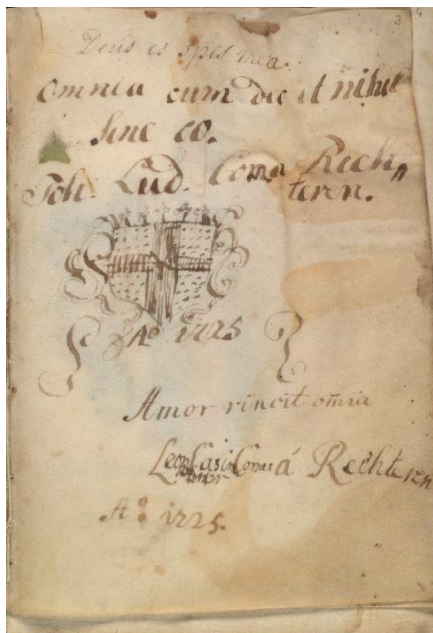 3
Deus es spes mea.
Omnia cum deo et nihil
sine eo.
Joh. Lud. Comes a Rech
teren.
Aº 1725
Amor vincit om̄ia
Comes á Rechteren
Aº 1725.